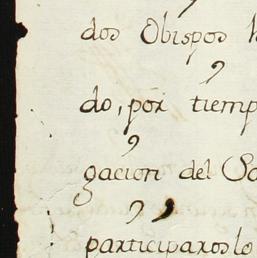 dos Obispos
do, por tiemp
gacion del So
participaroslo